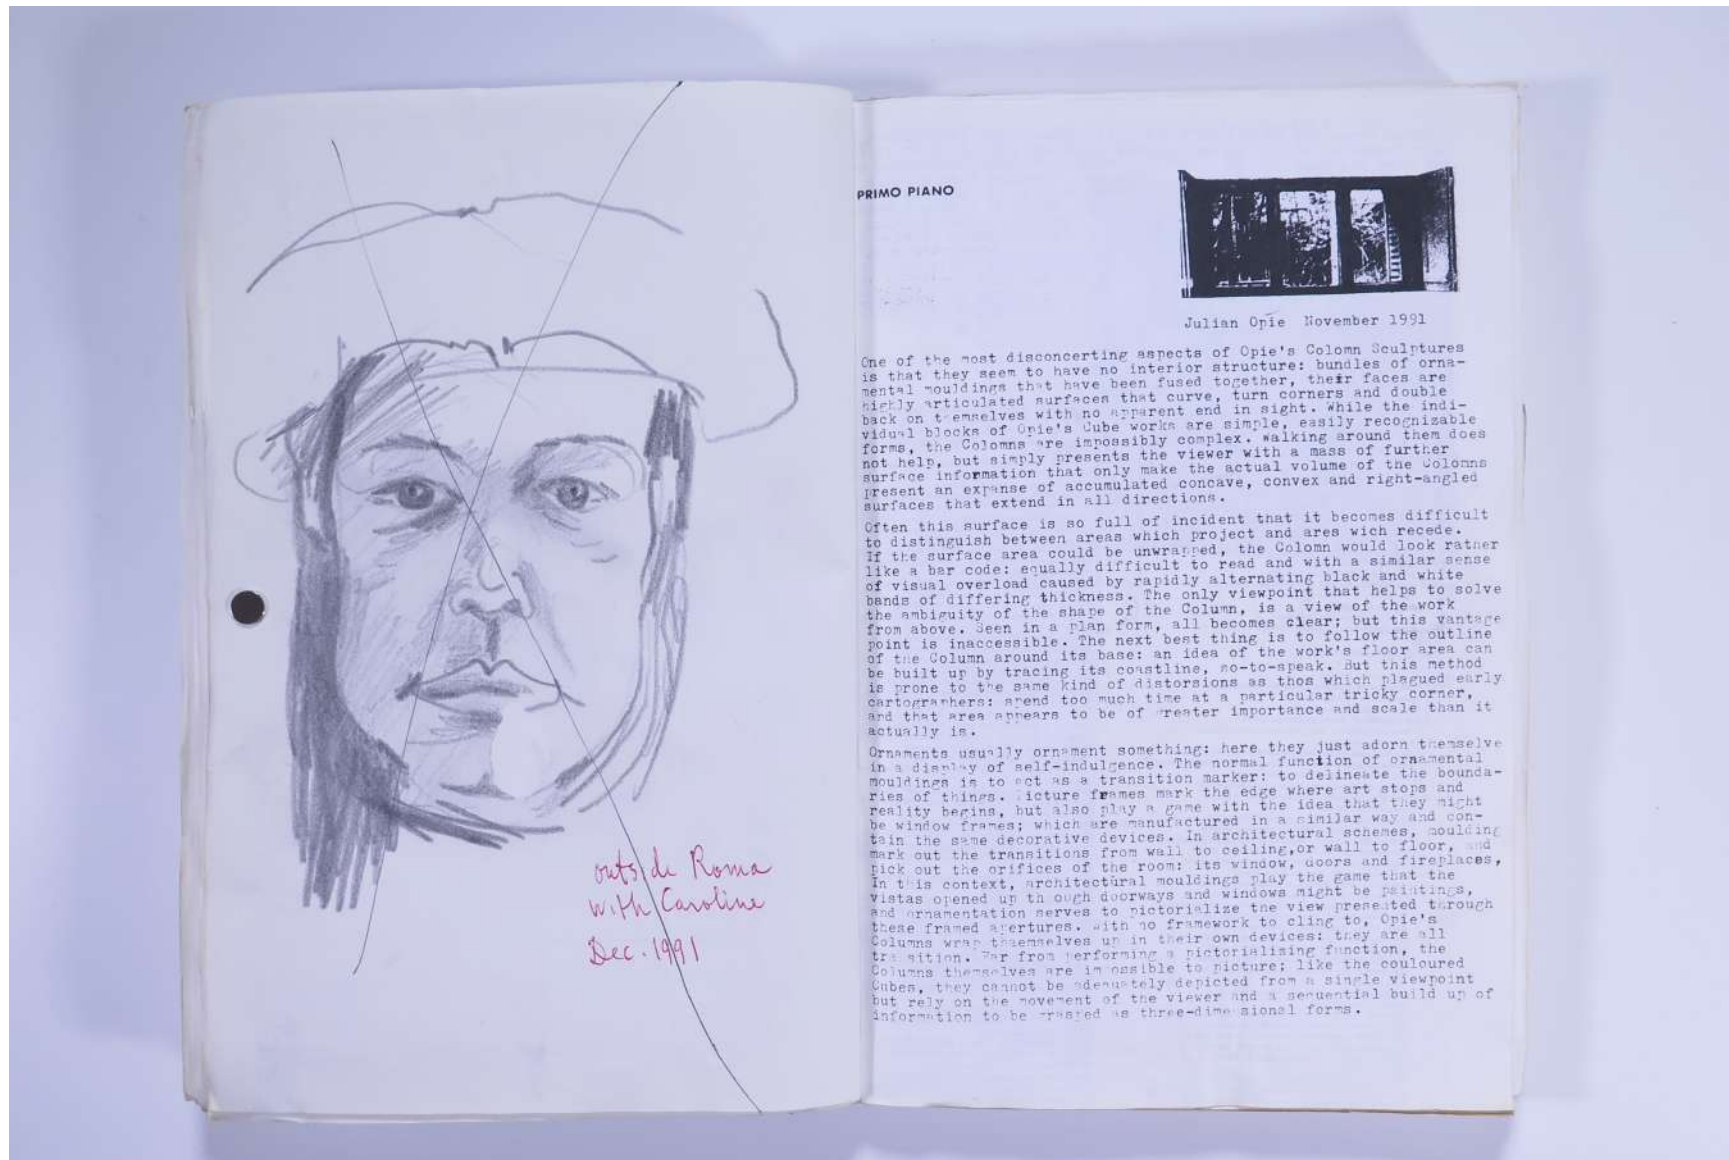 outside Roma
with Caroline
Dec. 1991
PRIMO PIANO
Julian Opie November 1991
One of the most disconcerting aspects of Opie's Colomn Sculptures
is that they seem to have no interior structure: bundles of orna-
mental mouldings that have been fused together, their faces are
highly articulated surfaces that curve, turn corners and double
back on themselves with no apparent end in sight. While the indi-
vidual blocks of Opie's Cube works are simple, easily recognizable
forms, the Colomns are impossibly complex. Walking around them does
not help, but simply presents the viewer with a mass of further
surface information that only make the actual volume of the Colomns
present an expanse of accumulated concave, convex and right-angled
surfaces that extend in all directions.
Often this surface is so full of incident that it becomes difficult
to distinguish between areas which project and ares wich recede.
If the surface area could be unwrapped, the Colomn would look rather
like a bar code: equally difficult to read and with a similar sense
of visual overload caused by rapidly alternating black and white
bands of differing thickness. The only viewpoint that helps to solve
the ambiguity of the shape of the Column, is a view of the work
from above. Seen in a plan form, all becomes clear; but this vantage
point is inaccessible. The next best thing is to follow the outline
of the Column around its base: an idea of the work's floor area can
be built up by tracing its coastline, so-to-speak. But this method
is prone to the same kind of distorsions as thos which plagued early
cartographers: spend too much time at a particular tricky corner,
and that area appears to be of greater importance and scale than it
actually is.
Ornaments usually ornament something: here they just adorn themselve
in a display of self-indulgence. The normal function of ornamental
mouldings is to act as a transition marker: to delineate the bounda-
ries of things. Picture frames mark the edge where art stops and
reality begins, but also play a game with the idea that they might
be window frames; which are manufactured in a similar way and con-
tain the same decorative devices. In architectural schemes, moulding
mark out the transitions from wall to ceiling,or wall to floor, and
pick out the orifices of the room: its window, doors and fireplaces,
In this context, architectural mouldings play the game that the
vistas opened up through doorways and windows might be paintings,
and ornamentation serves to pictorialize the view presented through
these framed apertures. With no framework to cling to, Opie's
Columns wrap thaemselves up in their own devices: they are all
transition. Far from performing a pictorializing function, the
Columns themselves are impossible to picture; like the couloured
Cubes, they cannot be adequately depicted from a single viewpoint
but rely on the movement of the viewer and a sequential build up of
information to be grasped as three-dimensional forms.